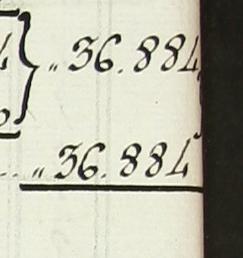 „ 36.884
„ 36.884